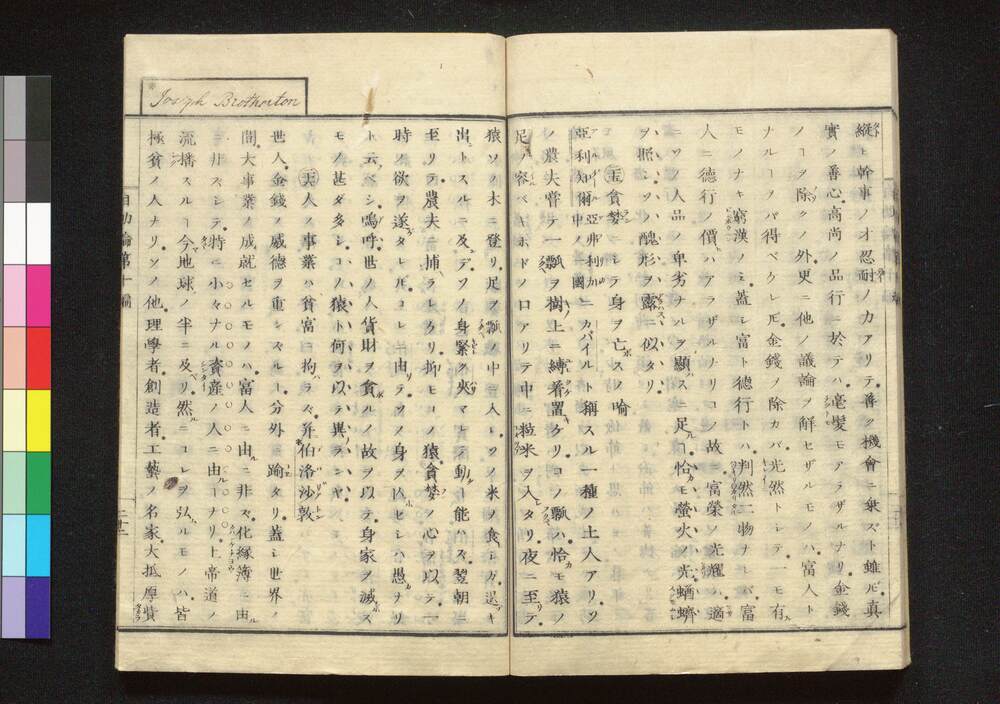 縦ヒ幹事ノ才忍耐ノ力アリテ善ク機會ニ乗スト雖𪜈眞
實ノ善心高尚ノ品行ニ於テハ毫髪モアラザルナリ金錢
ノヿヲ除クノ外更ニ他ノ議論ヲ解セザルモノハ富人ト
ナルヿヲバ得ベクレ𪜈金錢ノ除カバ光然トシテ一モ有
モノナキ窮漢ノミ蓋シ富ト德行トハ判然二物ナレバ富
人ニ德行ノ價ハアラザルナリコノ故ニ富榮ノ光耀ハ適
ニソノ人品ノ卑劣ナルヲ顯スニ足ル恰カモ螢火ノ光蝤蠐
ヲ照シソノ醜形ヲ露スニ似タリ
㊄貪婪ニシテ身ヲ亡スノ喩
亞利知爾亞弗利加中ノ一國ニカバイルト稱スル一種ノ土人アリソ
ノ農夫甞テ一瓢ヲ樹上ニ縛着置ケリコノ瓢ハ恰カモ猿ノ
足ノ容ベキホドノ口アリテ中ニ粒米ヲ入レタリ夜ニ至リテ
猿ソノ木ニ登リ足ヲ瓢ノ中ニ入レソノ米ヲ食ヒ逞キ
出トスルニ及デソノ身緊ク夾マレテ動クヿ能ハズ翌朝ニ
至リテ農夫ニ捕ラレケリ抑モコノ猿貪婪ノ心ヲ以テ一
時ノ欲ヲ遂タレ𪜈コレニ由リテソノ身ヲ囚ヘセシハ愚カナリ
ト云ベシ嗚呼世ノ人貨財ヲ貪ルノ故ヲ以テ身家ヲ滅ス
モノ甚ダ多シコノ猿ト何ヲ以テ異ランヤ
㊅人ノ事業ハ貧富ニ拘ラズ 并伯洛沙敦
世人金錢ノ威德ヲ重シスルヿ分外ニ踰タリ蓋シ世界ノ
間大事業ノ成就セルモノハ富人ニ由ルニ非ズ化緣簿ニ由ル
ニ非ズシテ特ニ小々ナル資産ノ人ニ由ルヿナリ上帝道ノ
流播スルヿ今地球ノ半ニ及ベリ然ルニコレヲ弘ルモノハ皆
極貧ノ人ナリソノ他理學者創造者工藝ノ名家大抵厚貲
Joseph Brotherton
自助論第十編